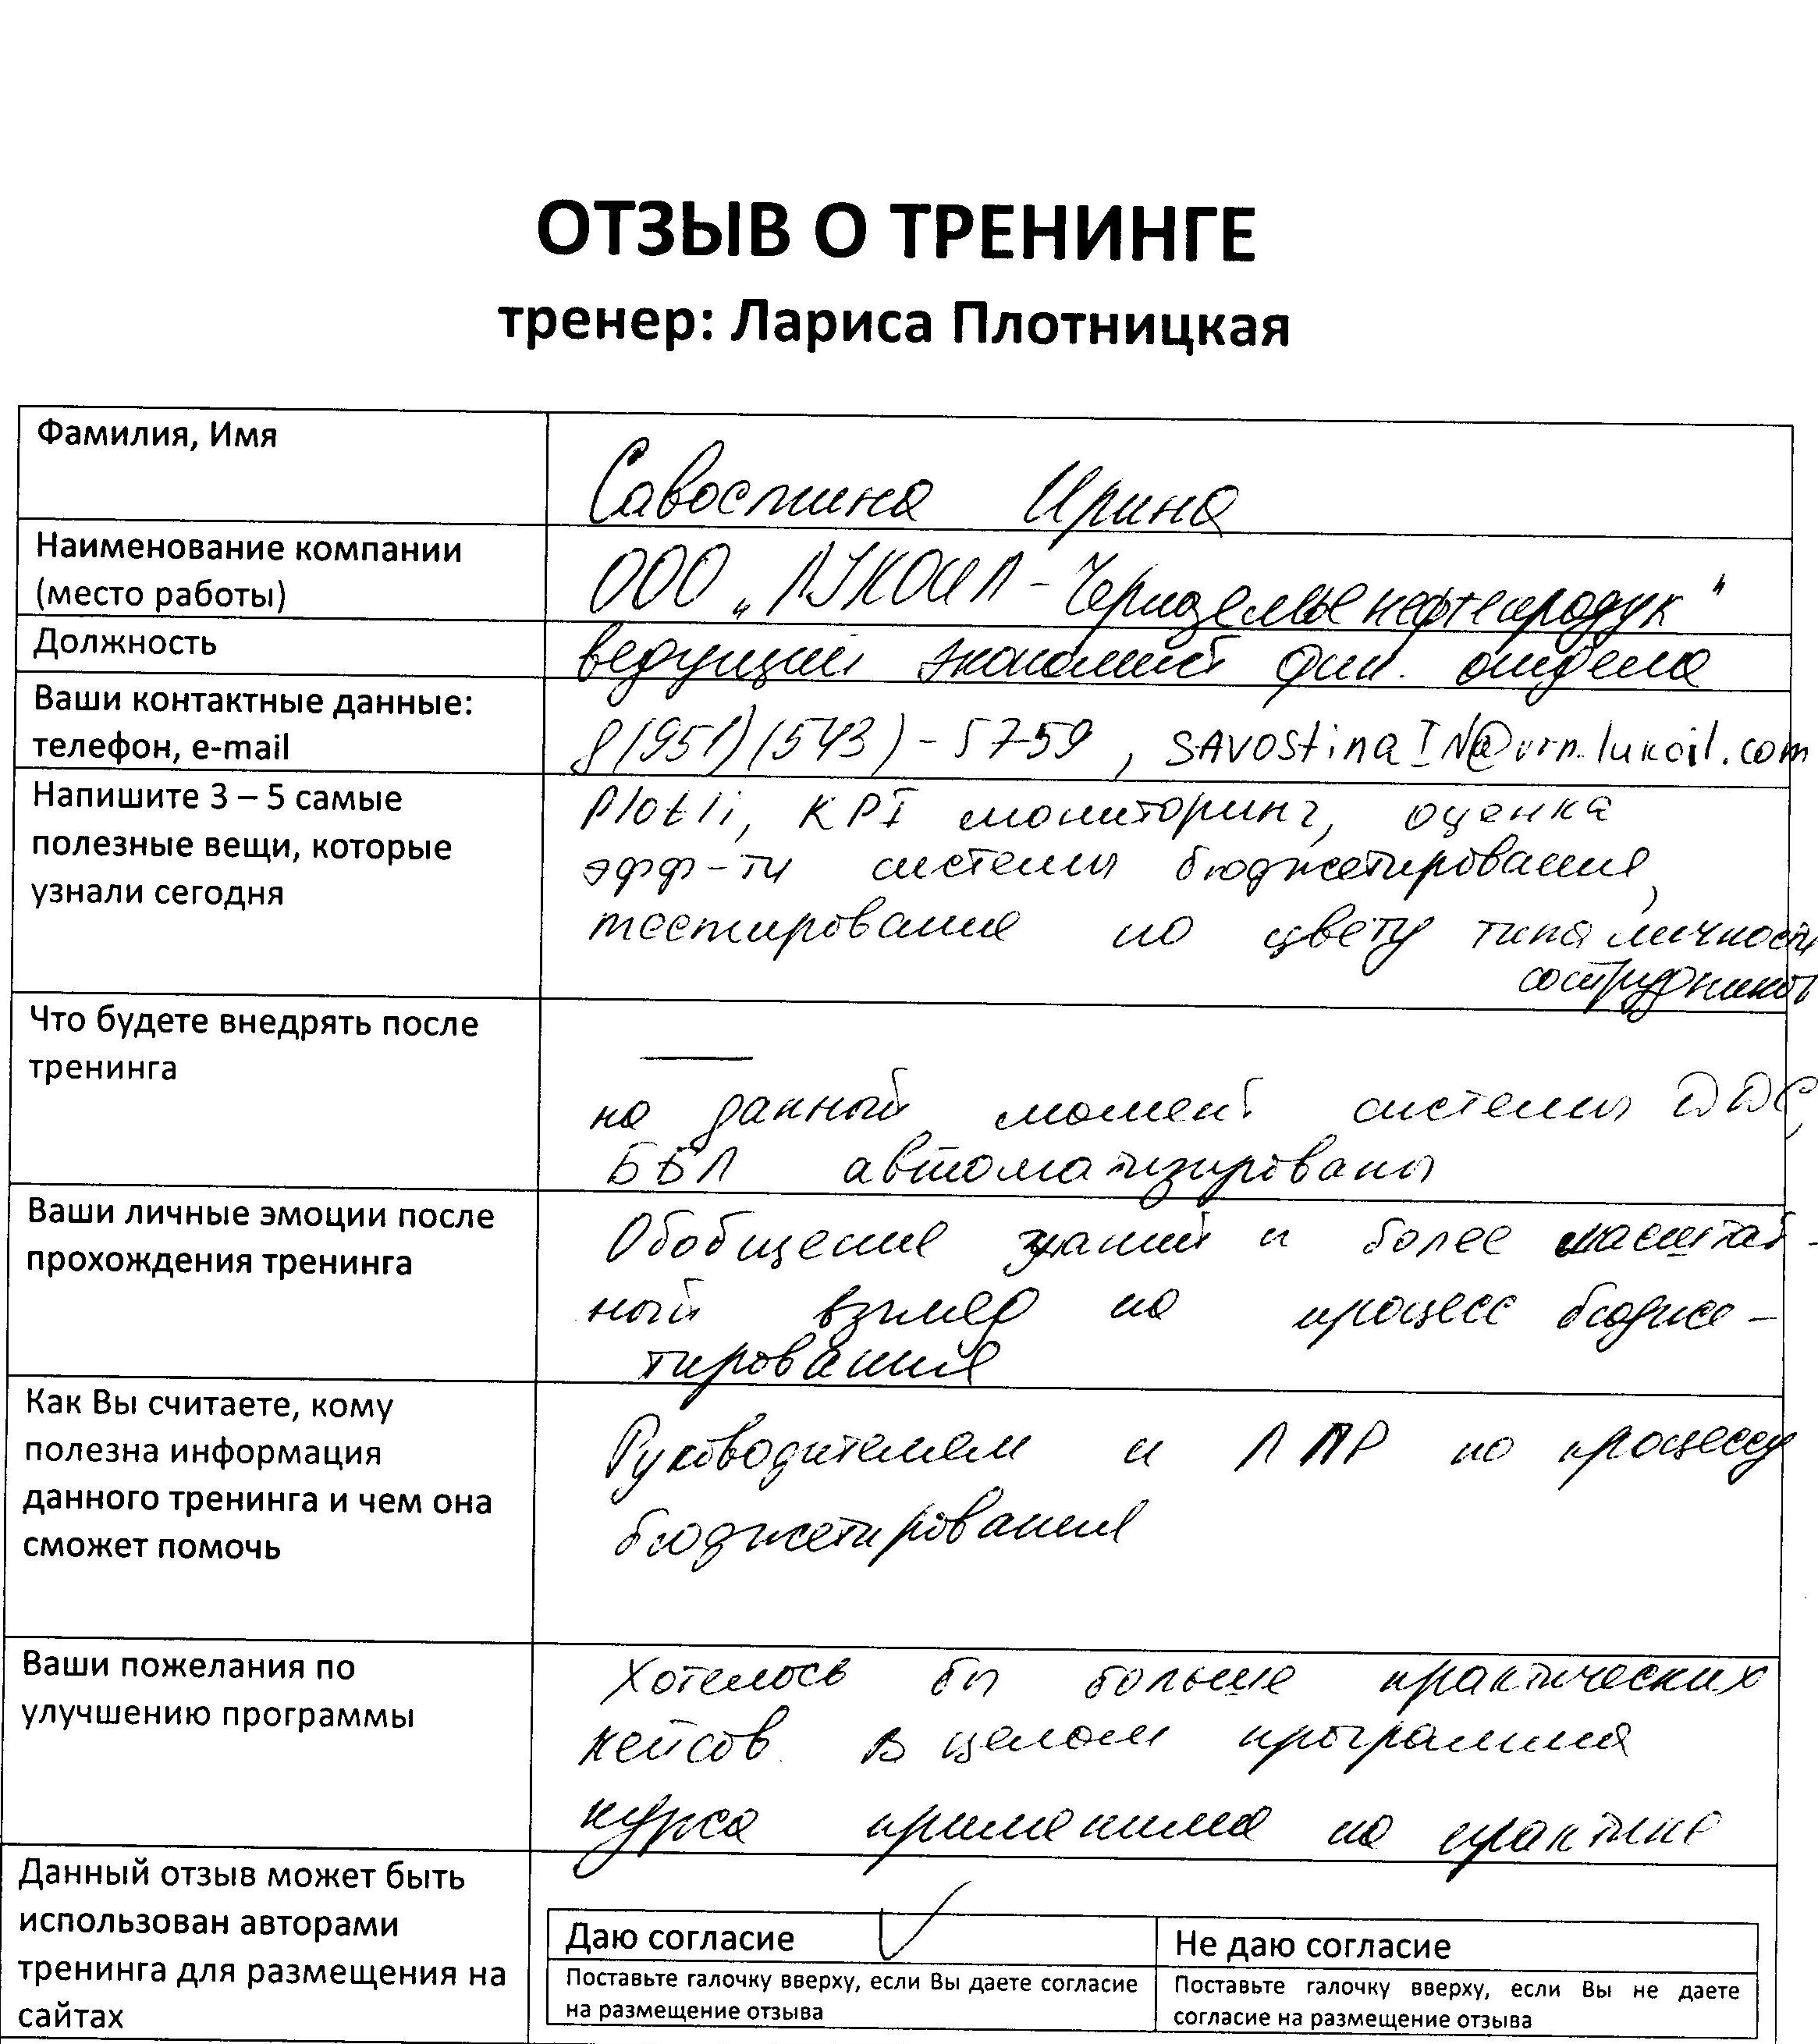 ОТЗЫВ О ТРЕНИНГЕ
тренер: Лариса Плотницкая
Фамилия, Имя
Савостина Ирина
Наименование компании
(место работы)
ООО „ЛУКОИЛ - Черноземьенефтепродук"
Должность
ведущий экономист фин. отдела
Ваши контактные данные:
телефон, e-mail
8(951)(543)-5759, SAVOStinaIN@vrn.lukoil.com
Напишите 3 – 5 самые
полезные вещи, которые
узнали сегодня
Plotli, KPI мониторинг, оценка
эфф-ти системы бюджетирования,
тестирование по цвету типа личности
сотрудников
Что будете внедрять после
тренинга
—
на данный момент системы ДДС,
ББЛ автоматизированы
Ваши личные эмоции после
прохождения тренинга
Обобщение знаний и более масштаб-
ный взгляд на процесс бюдже-
тирования
Как Вы считаете, кому
полезна информация
данного тренинга и чем она
сможет помочь
Руководителям и ЛПР по процессу
бюджетирования
Ваши пожелания по
улучшению программы
Хотелось бы больше практических
кейсов. В целом программа
курса применима на практике
Данный отзыв может быть
использован авторами
тренинга для размещения на
сайтах
Даю согласие ✓
Поставьте галочку вверху, если Вы даете согласие
на размещение отзыва
Не даю согласие
Поставьте галочку вверху, если Вы не даете
согласие на размещение отзыва